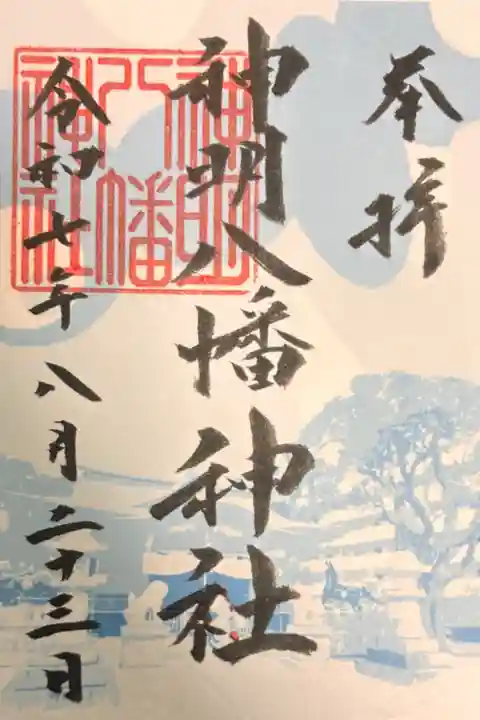 奉拝
神明八幡神社
令和七年八月二十三日
神明
八幡
神社